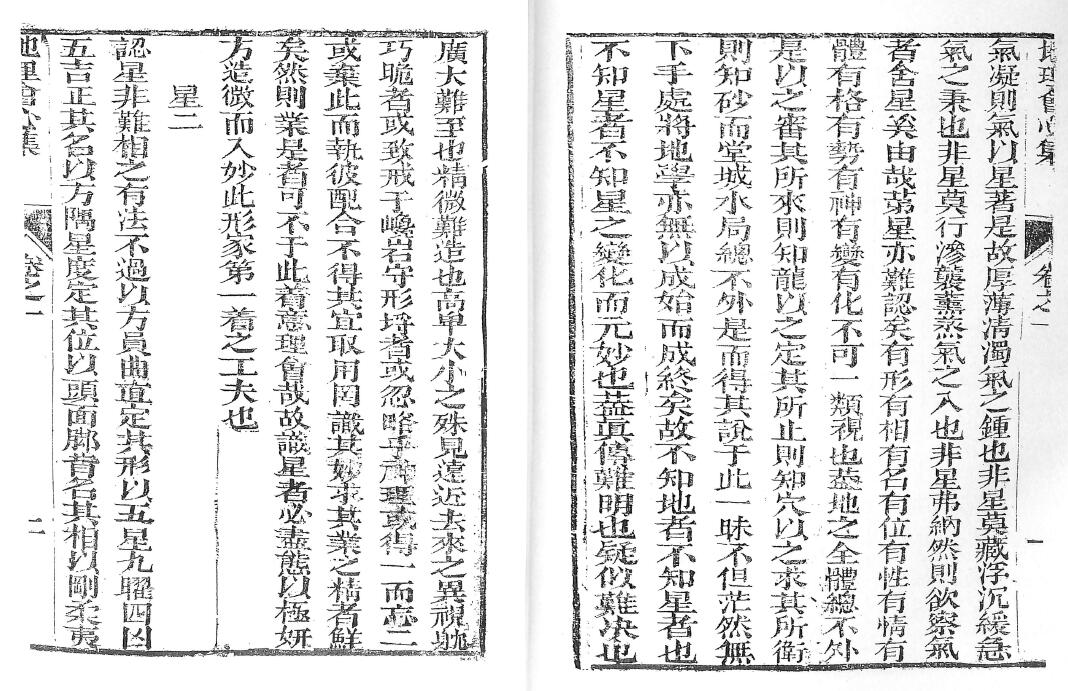 地理會心集
卷之一
一
氣凝則氣以星著是故厚薄清濁氣之鍾也非星莫藏浮沉緩急
氣之秉也非星莫行滲襲薰蒸氣之入也非星弗納然則欲察氣
者舍星奚由哉苐星亦難認矣有形有相有名有位有性有情有
體有格有勢有神有變有化不可一類視也葢地之全體總不外
是以之審其所來則知龍以之定其所止則知穴以之求其所衛
則知砂而堂城水局總不外是而得其說于此一昧不但茫然無
下手處將地學亦無以成始而成終矣故不知地者不知星者也
不知星者不知星之變化而元妙也葢真傳難明也疑似難决也
廣大難至也精微難造也高单大小之殊見遠近去來之異視躭
巧詭者或致戒于巉岩守形埒者或忽略乎理或得一而忘二
或棄此而執彼配合不得其宜取用罔識其妙求其業之精者鮮
矣然則業是者可不于此着意理會哉故識星者必盡態以極妍
方造微而入妙此形家第一着之工夫也
星二
認星非難相之有法不過以方員曲直定其形以五星九曜四凶
五吉正其名以方隅星度定其位以頭面脚背名其相以剛柔夷
地理會心集
卷之一
二